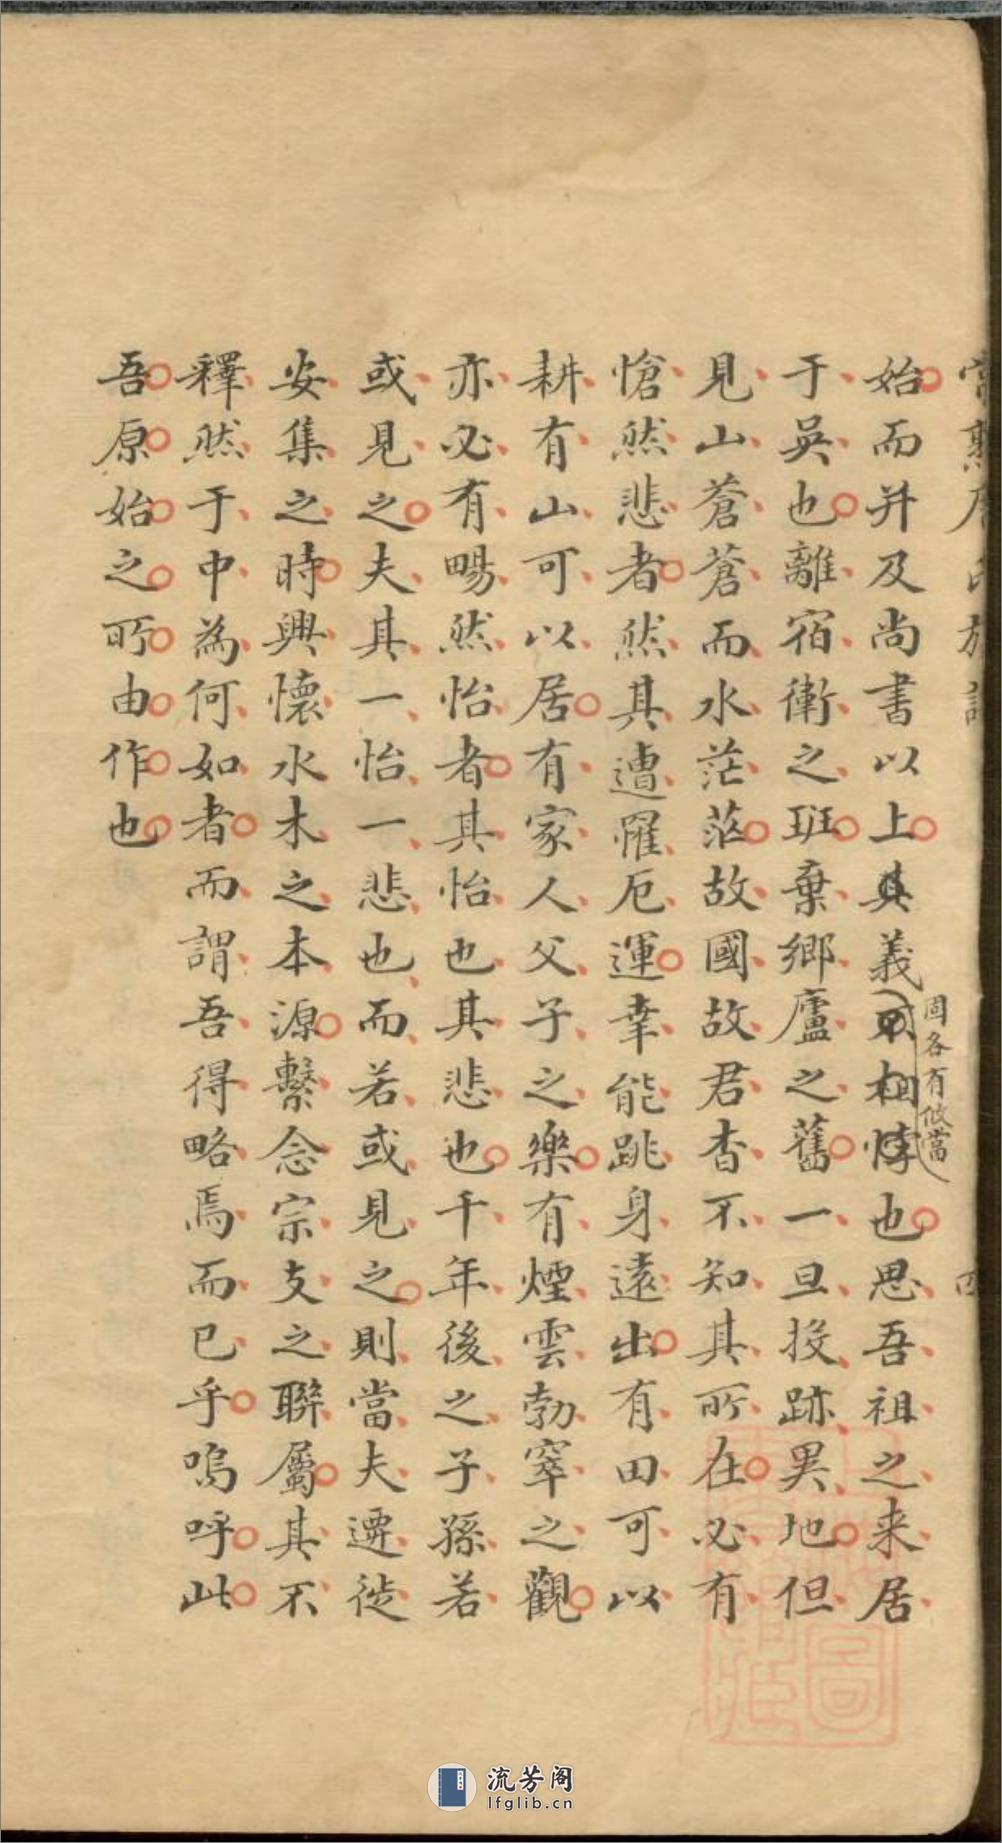 常熟 氏族譜 四
始而并及尚書以上其義可相悖也思吾祖之来居
固各有攸當
于吳也離宿衛之班棄鄉廬之舊一旦投跡異地但
見山蒼蒼而水茫茫故國故君杳不知其所在必有
愴然悲者然其遭罹厄運幸能跳身遠出有田可以
耕有山可以居有家人父子之樂有煙雲勃窣之觀
亦必有暢然怡者其怡也其悲也千年後之子孫若
或見之夫其一怡一悲也而若或見之則當夫遷徙
安集之時興懷水木之本源繫念宗支之聯屬其不
釋然于中為何如者而謂吾得略焉而已乎嗚呼此
吾原始之所由作也
圖
流芳阁
lfglib.cn